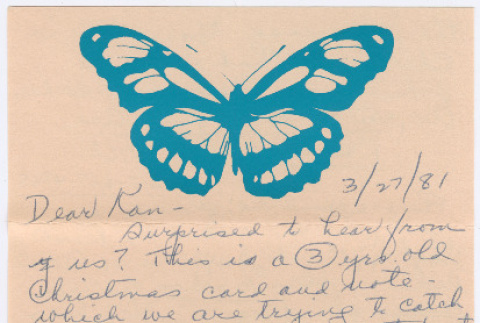 3/27/81
Dear Kan -
Surprised to hear from
of us? This is a 3 yrs. old
Christmas card and note -
which we are trying to catch